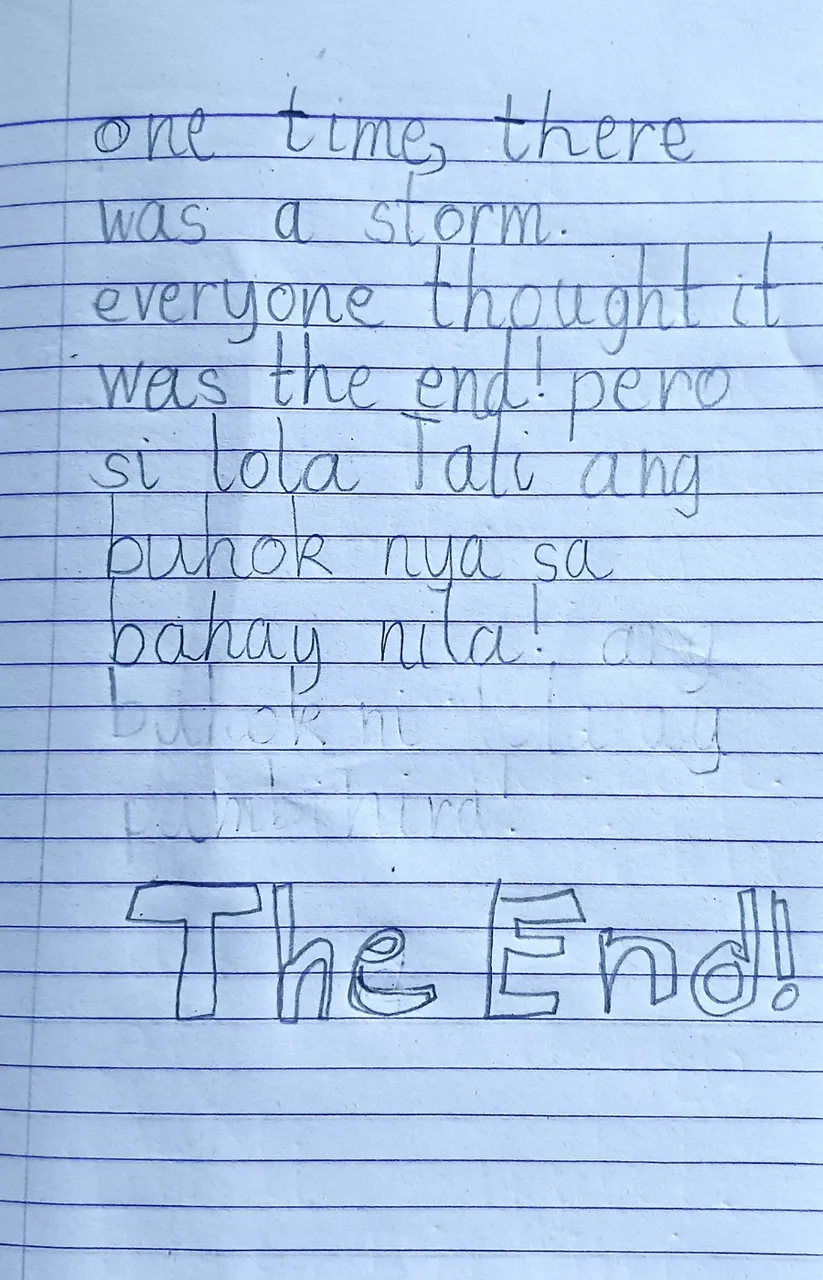 one time, there
was a storm.
everyone thought it
was the end! pero
si lola Tali ang
buhok nya sa
bahay nila! ang
buhok ni
The End!